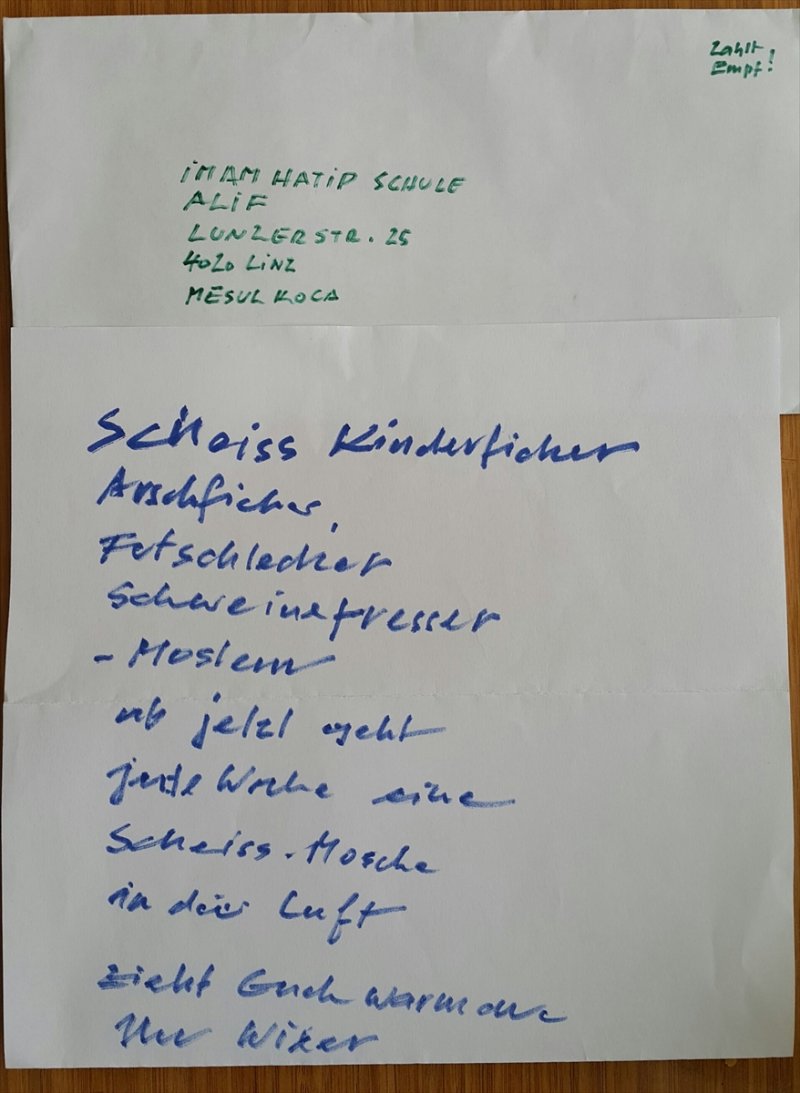 Zahlt
Empf!
IMAM HATIP SCHULE
ALIF
LUNZERSTR. 25
4020 LINZ
MESUL KOCA
Scheiss Kinderficker
Arschficker,
Fotschlecker
Schweinefresser
- Moslem
ab jetzt geht
jede Woche eine
Scheiss-Mosche
in die Luft
zieht Euch warm an
Ihr Wixer